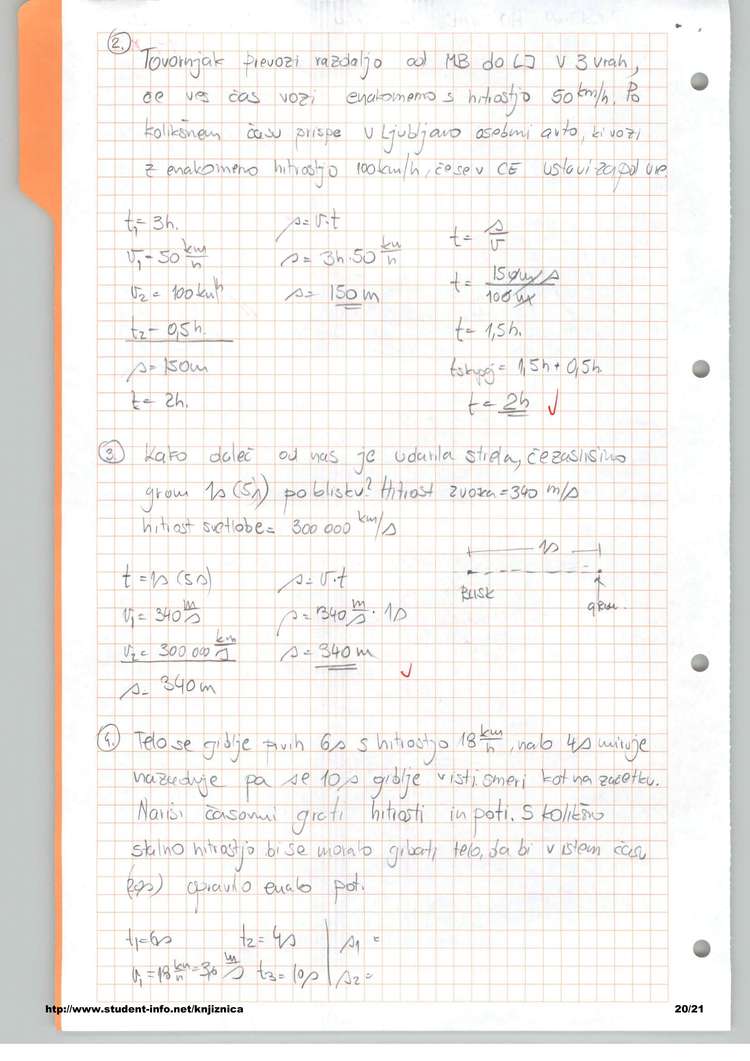 2. Tovornjak prevozi razdaljo od MB do LJ v 3 urah,
če ves čas vozi enakomerno s hitrostjo 50 km/h. Po
kolikšnem času prispe v Ljubljano osebni avto, ki vozi
z enakomerno hitrostjo 100 km/h, če se v CE ustavi za pol ure.
t₁ = 3h.
v₁ = 50 km/h
v₂ = 100 km/h
t₂ = 0,5h.
s = 150m
t = 2h.
s = v·t
s = 3h·50 km/h
s = 150 m
t = s/v
t = 150
100
t = 1,5h.
tskupaj = 1,5h + 0,5h
t = 2h ✓
3. Kako daleč od nas je udarila strela, če zaslišimo
grom 1s (5s) po blisku? Hitrost zvoka = 340 m/s
hitrost svetlobe = 300 000 km/s
t = 1s (5s)
v₁ = 340 m/s
v₂ = 300 000 km/s
s = 340 m
s = v·t
s = 340 m/s · 1s
s = 340 m
✓
1s
BLISK
grom.
4. Telo se giblje prvih 6s s hitrostjo 18 km/h, nato 4s miruje
nazadnje pa se 10s giblje v isti smeri kot na začetku.
Nariši časovni grafi hitrosti in poti. S kolikšno
stalno hitrostjo bi se moralo gibati telo, da bi v istem času
opravilo enako pot.
t₁ = 6s
t₂ = 4s
s₁ =
v₁ = 18 km/h =
t₃ = 10s
s₂ =
http://www.student-info.net/knjiznica
20/21